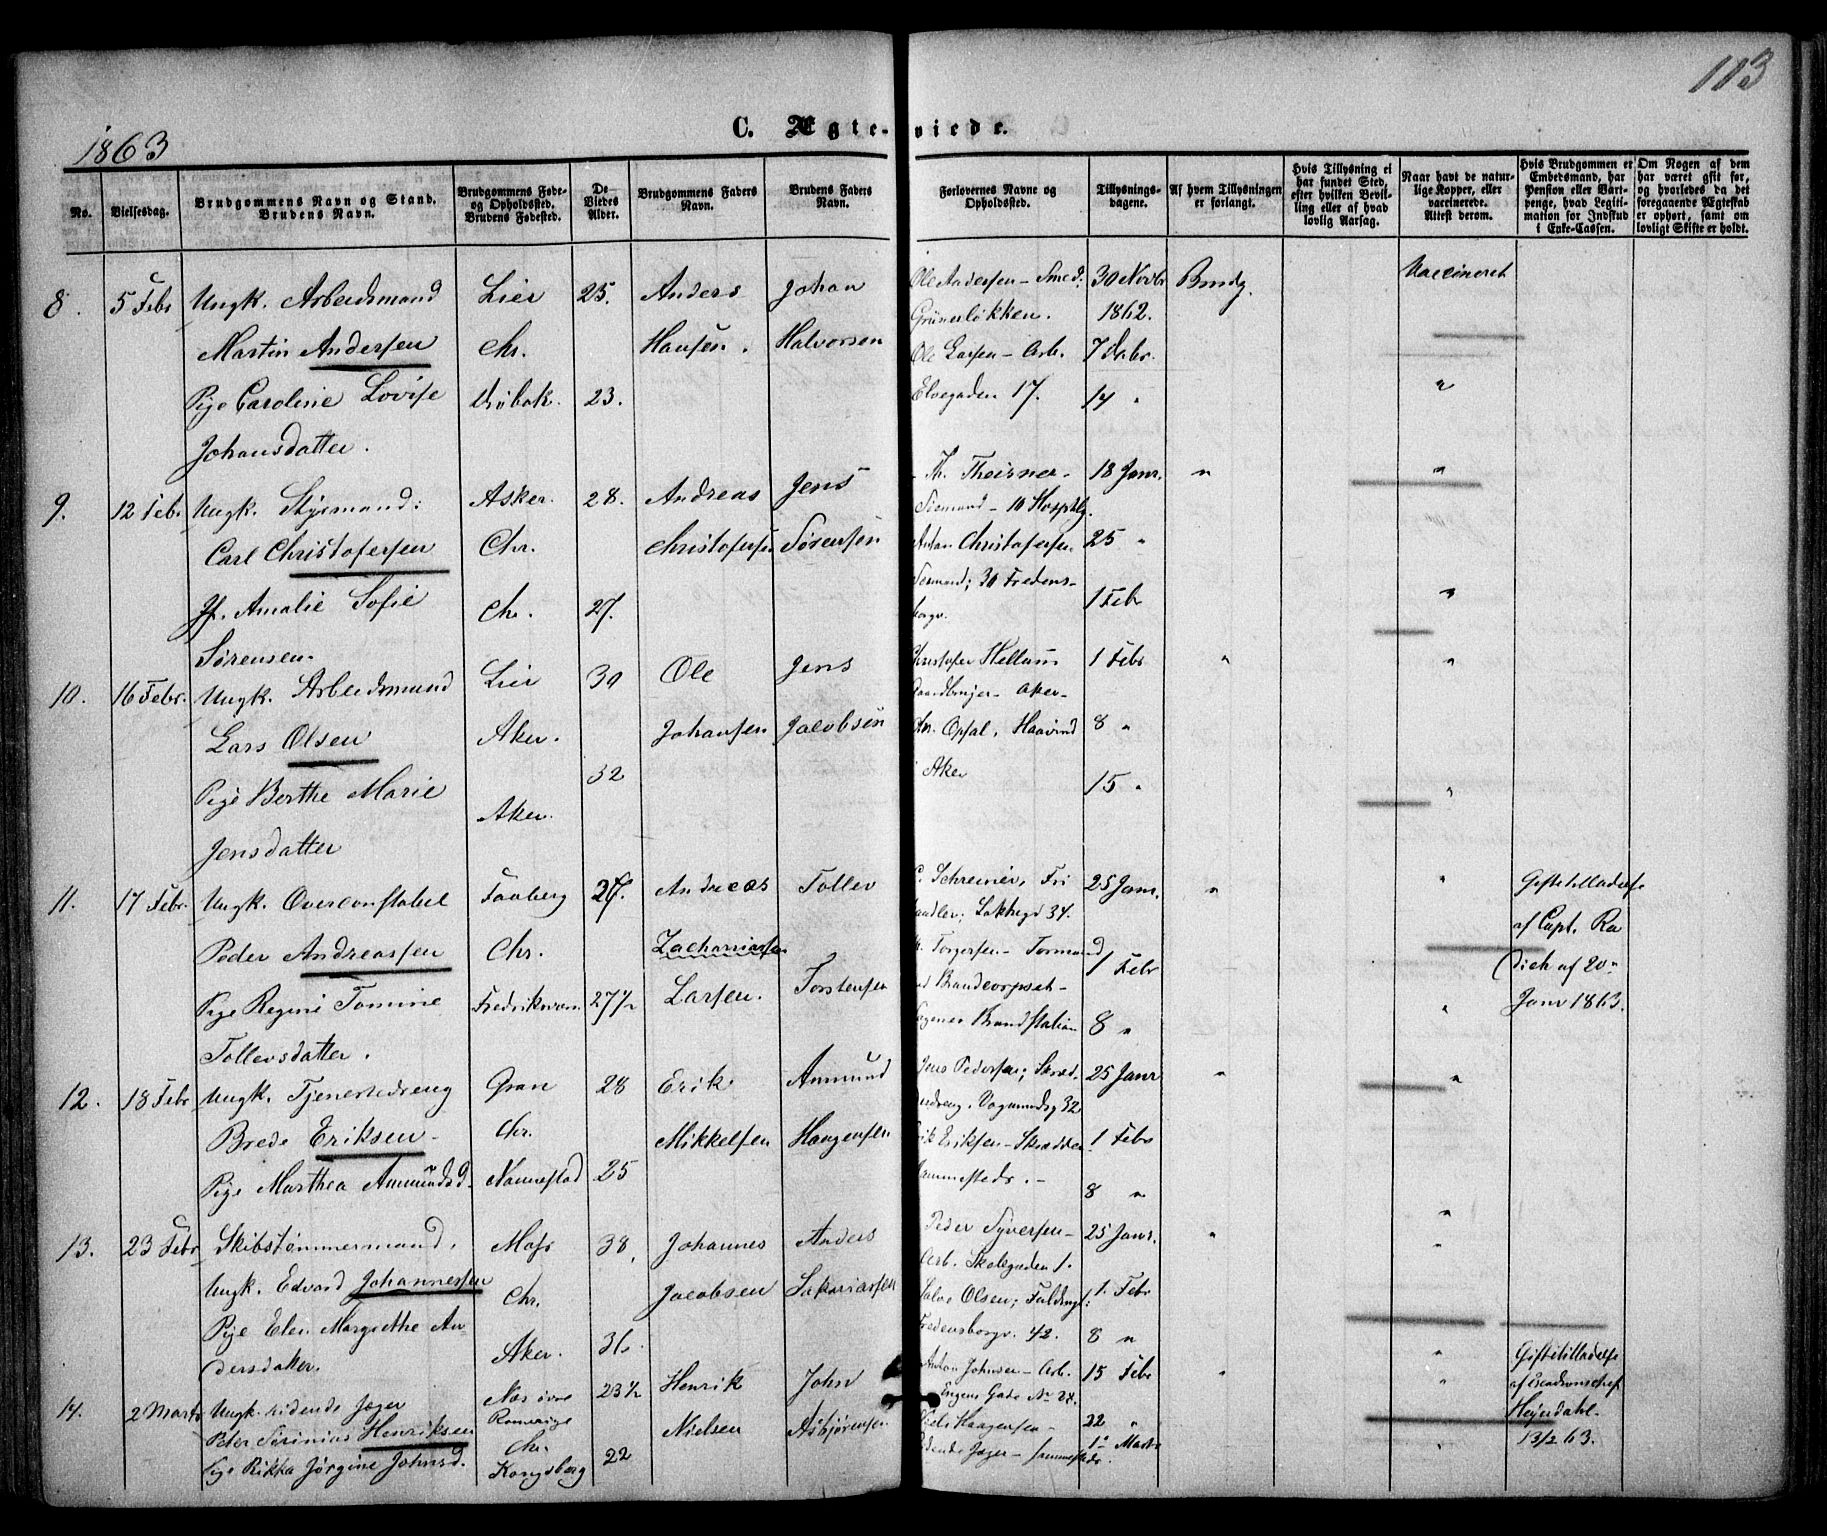 113
1863
C. Ægteviede.
No.
Vielsesdag.
Brudgommens Navn og Stand.
Brudens Navn.
Brudgommens Føde-
og Opholdssted.
Brudens Fødested.
De
Viedes
Alder.
Brudgommens Faders
Navn.
Brudens Faders
Navn.
Forlovernes Navne og
Opholdssted.
Tillysnings-
dagene.
Af hvem Tillysningen
er forlangt.
Hvis Tillysning ei
har fundet Sted,
efter hvilken Bevil-
ling eller af hvad
lovlig Aarsag.
Naar havt de natur-
lige Kopper, eller
vaccinerede.
Attest derom.
Hvis Brudgommen er
Embedsmand, har
Pension eller Vart-
penge, hvad Legiti-
mation for Indskud
i Enke-Cassen.
Om Nogen af dem
har været gift før,
og hvorledes da det
foregaaende Ægteskab
er ophørt, samt om
lovligt Skifte er holdt.
8. 5 Febr Ungk. Arbeidsmand Lier 25. Anders Johan Ole Andersen - Smed. 30 Novbr Brudg. Vaccineret
Martin Andersen Chr. Hansen. Halvorsen Grünerløkken. 1862.
Ole Larsen - Arb. 7 Debr.
Pige Caroline Lovise Drøbak. 23. Elvegaden 17. 14 "
Johansdatter.
9. 12 Feb. Ungk. Styrmand: Asker. 28. Andreas Jens Th. Theisner - 18 Janr. "
Carl Christofersen Chr. Christofersen Sørensen Sømand - 10 Hospitlg.
Anton Christofersen 25 "
Jf. Amalie Sofie Chr. 27. Sømand; 30 Fredens- 1 Febr
borgv.
Sørensen.
10. 16 Febr. Ungk. Arbeidsmand Lier 30 Ole Jens Christofer Hellum 1 Febr "
Lars Olsen Aker. Johansen Jacobsen Gaardbruger - Aker -
Opsal, Haavind 8 "
Pige Berthe Marie Aker. 32 Aker 15 "
Jensdatter
11. 17 Febr. Ungk. Overconstabel Faaberg 27. Andreas Tollev Schreiner, 25 Janr. " Giftetilladelse
Peder Andreassen Chr. Zachariassen 34. af Capt. Ra
Torgersen - Formand 1 Febr dich af 20n
Pige Regine Tomine Fredriksværn 27½ Larsen. Torstensen Brandcorpset - Janr 1863.
Tollevsdatter. Brandstation 8 "
12. 18 Febr Ungk. Tjenestedreng Gran 28 Erik Amund Jens Pedersen; 25 Janr "
Brede Eriksen Chr. Mikkelsen Haagensen Vognmandsg 32
Erik Eriksen - Skrædder 1 Febr
Pige Marthea Amundsd. Nannestad 25 sammesteds. - 8 "
13. 23 Febr Skibstømmermand, Moss 38, Johannes Anders Peder Syversen - 25 Janr. "
Ungk. Edvard Johannessen Chr. Jacobsen Sakariassen Arb. Skolegaden 1.
Olsen; 1. Febr
Pige Elen Margrethe An Aker. 36. Fredensborgv. 42. 8 "
dersdatter.
14. 2 Marts Ungk. ridende Jæger Næs øvre 23½ Henrik John Anton Johnsen - Arb. 15 Febr " Giftetilladelse
Peter Sørinius Henriksen Romerige Nielsen Asbjørnsen Engens Gade No 28. af Escadronschef
Chr. Haagensen - 22 " Heyerdahl -
Pige Rikka Jørgine Johnsd. Kongsberg 22 Ridende Jæger - sammesteds. 1 Marts 13/2 63.